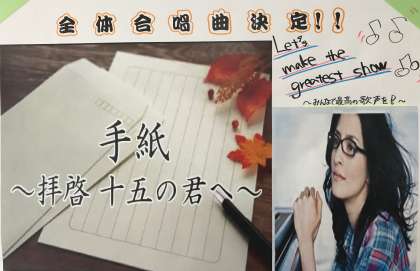 全体合唱曲決定!!
Let's
make the
greatest show
～みんなで最高の歌声を♪～
手紙
～拝啓 十五の君へ～